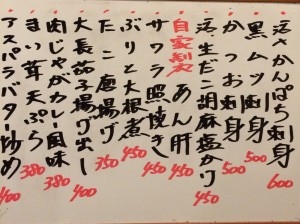 活かんぱち刺身 600
黒ムツ刺身 500
かつお刺身 500
活生だこ胡麻塩かり 450
自家製 あん肝 450
サワラ照焼き 450
ぶりと大根煮 450
たこ唐揚げ 350
大長茄子揚げ出し 400
肉じゃがカレー風味 380
まい茸天ぷら 380
アスパラバター炒め 400